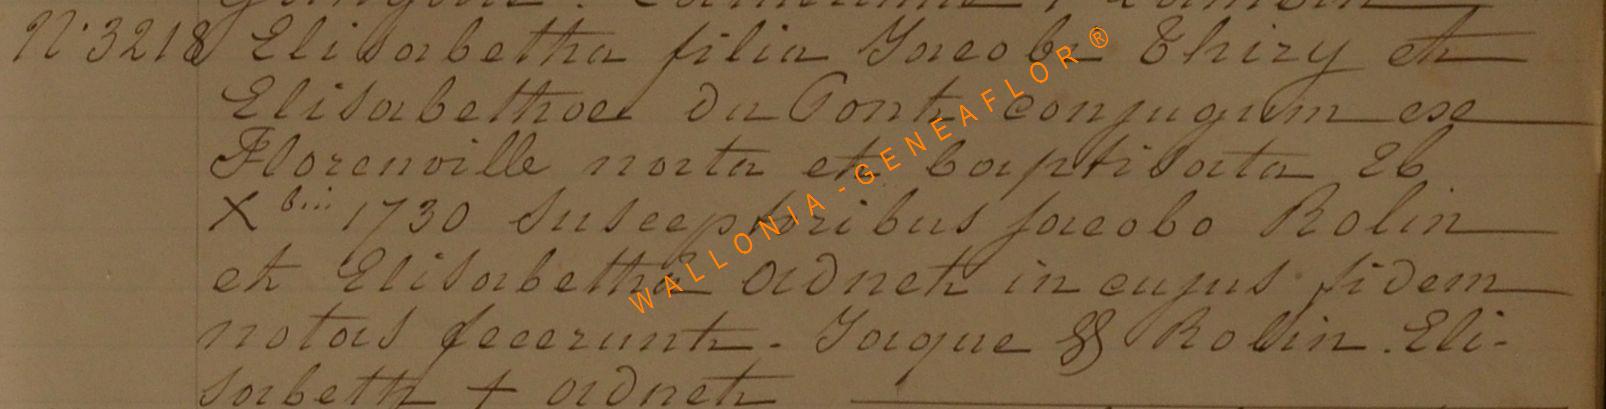 N° 3218 Elisabetha filia Jacobi Thiry et
Elisabethae du Pont conjugum ex
Florenville nata et baptisata 26
Xbris 1730 susceptoribus jacobo Rolin
et Elisabetha adnet in cujus fidem
notas fecerunt. Jaque Rolin. Eli-
sabeth + adnet
WALLONIA-GENEAFLOR®